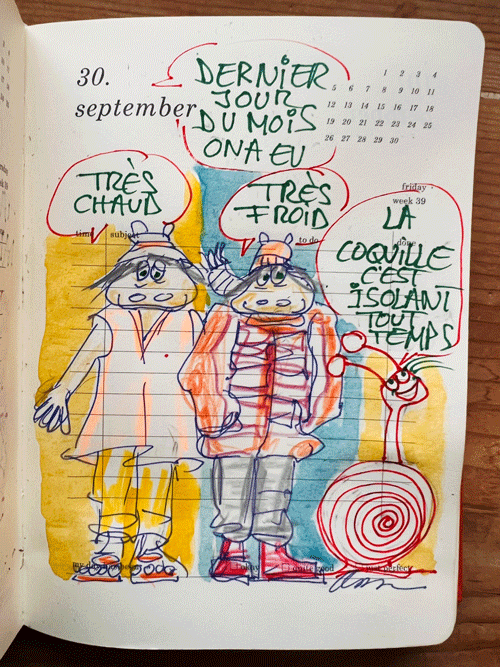 30.
september
DERNIER
JOUR
DU MOIS
ON A EU
1 2 3 4
5 6 7 8 9 10 11
12 13 14 15 16 17 18
19 20 21 22 23 24 25
26 27 28 29 30
friday
week 39
TRÈS
CHAUD
TRÈS
FROID
LA
COQUILLE
C'EST
ISOLANT
TOUT
TEMPS
time subject to do done